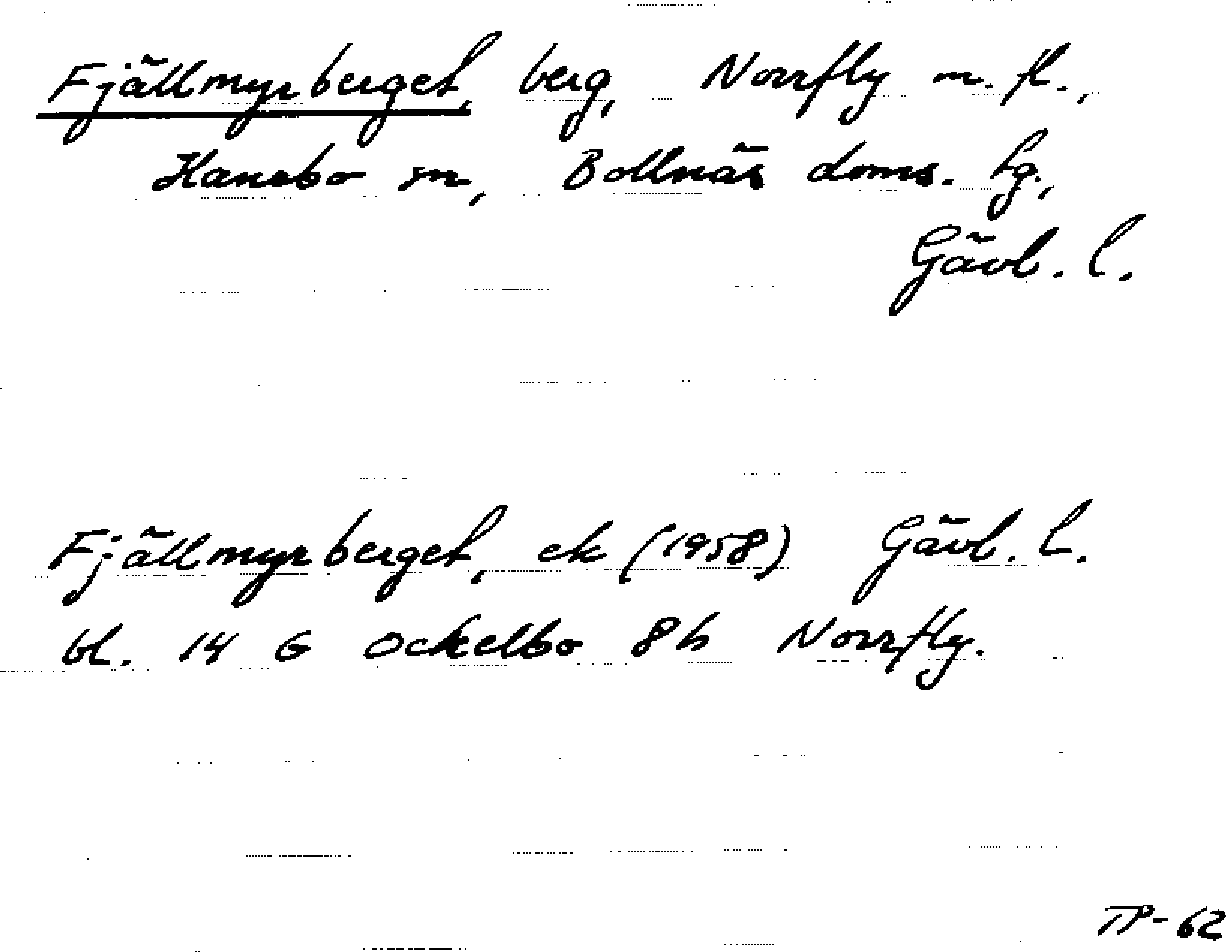 Fjällmyrberget, berg, Norrfly m. fl.,
Hanebo sn, Bollnäs doms. tg.,
Gävl. l.
Fjällmyrberget, ek (1958) Gävl. l.
bl. 14 G Ockelbo 8h Norrfly.
TP-62